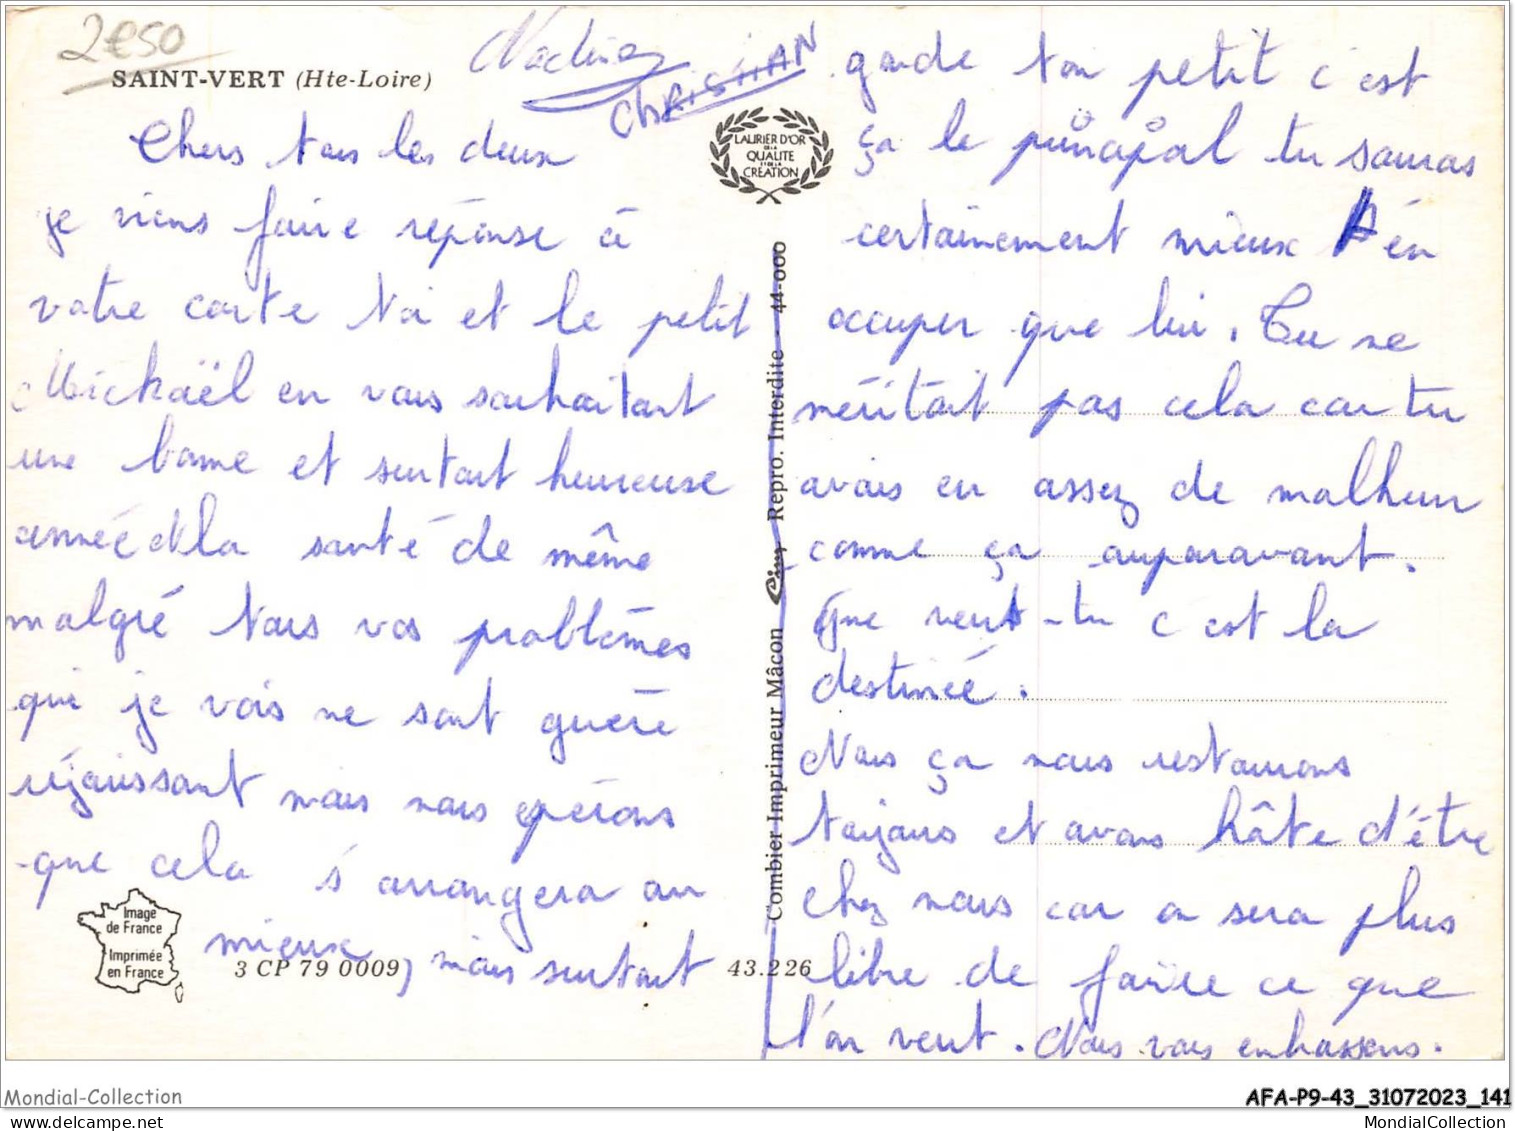 2€50
SAINT-VERT (Hte-Loire)
Nadine
CHRISTIAN
LAURIER D'OR
DE LA
QUALITE
ET DE LA
CREATION
Chers tous les deux
je viens faire réponse à
votre carte toi et le petit
Mickaël en vous souhaitant
une bonne et surtout heureuse
année et la santé de même
malgré tous vos problèmes
qui je vois ne sont guère
réjouissant mais nous epérons
que cela s'arrangera au
mieux, mais surtout
Image
de France
Imprimée
en France
3 CP 79 0009
43.226
Combier Imprimeur Mâcon Cim Repro. Interdite - 44-000
garde ton petit c'est
ça le principal tu sauras
certainement mieux t'en
occuper que lui. Tu ne
méritait pas cela car tu
avais eu assez de malheur
comme ça auparavant.
Que veut-tu c'est la
destinée.
Nous ça nous
toujours et avons hâte d'être
chez nous car on sera plus
libre de faire ce que
l'on veut. Nous vous embrassons.
Mondial-Collection
AFA-P9-43_31072023_141
mondial-collection.delcampe.net
MondialCollection